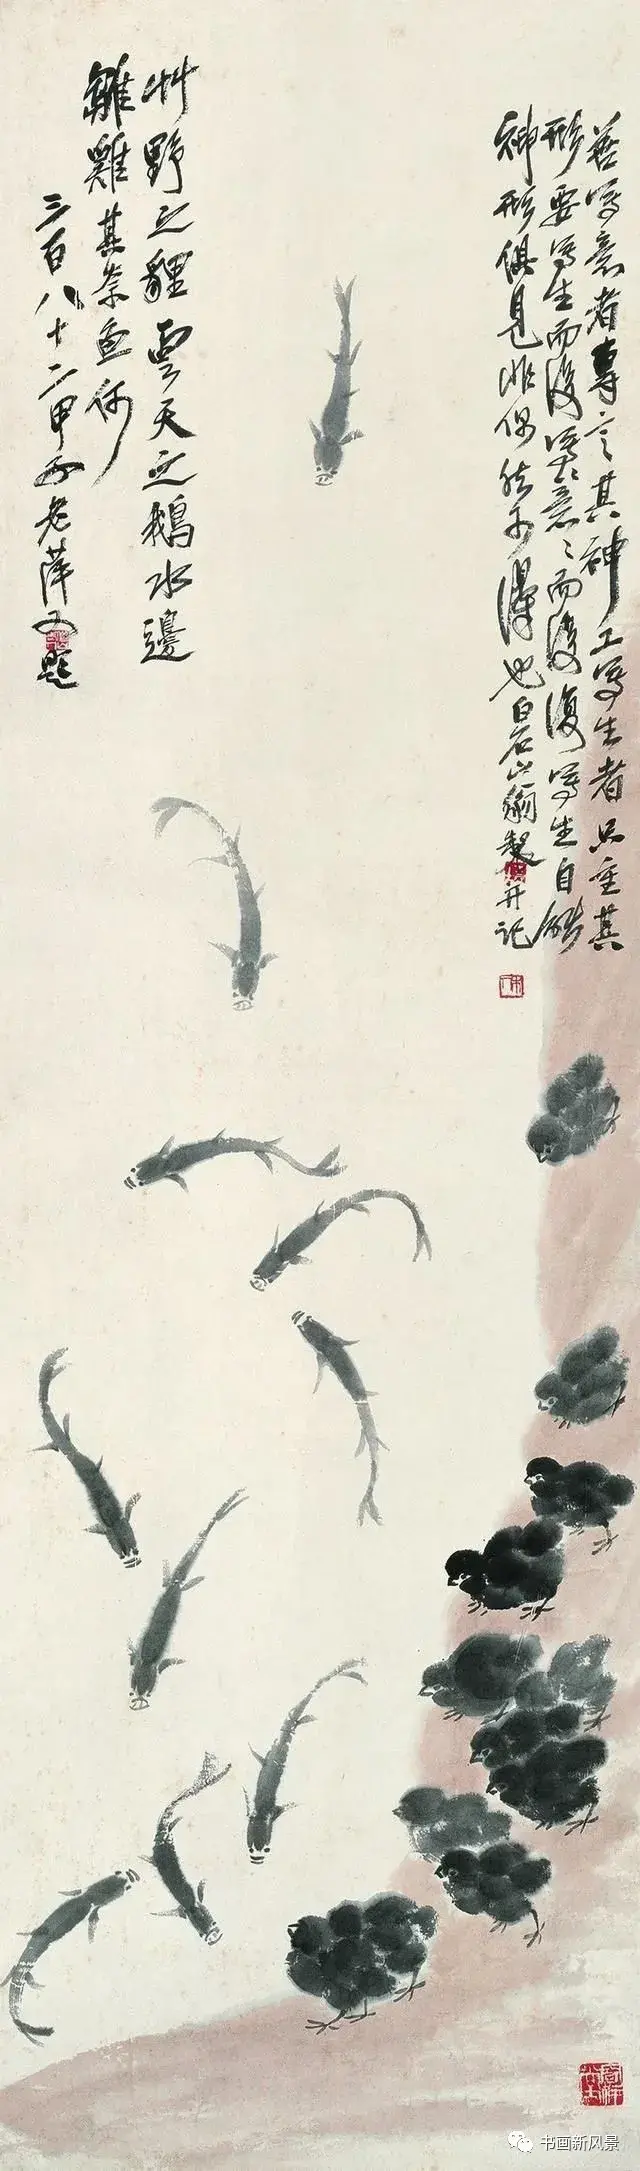 善寫意者專言其神工寫生者只重其
形要寫生而後寫意々而後復寫生自能
神形俱見非偶然可得也白石山翁製并記
艸野之貍雲天之鵝水邊
雛雞其奈魚何
三百八十二甲子老萍又題
书画新风景